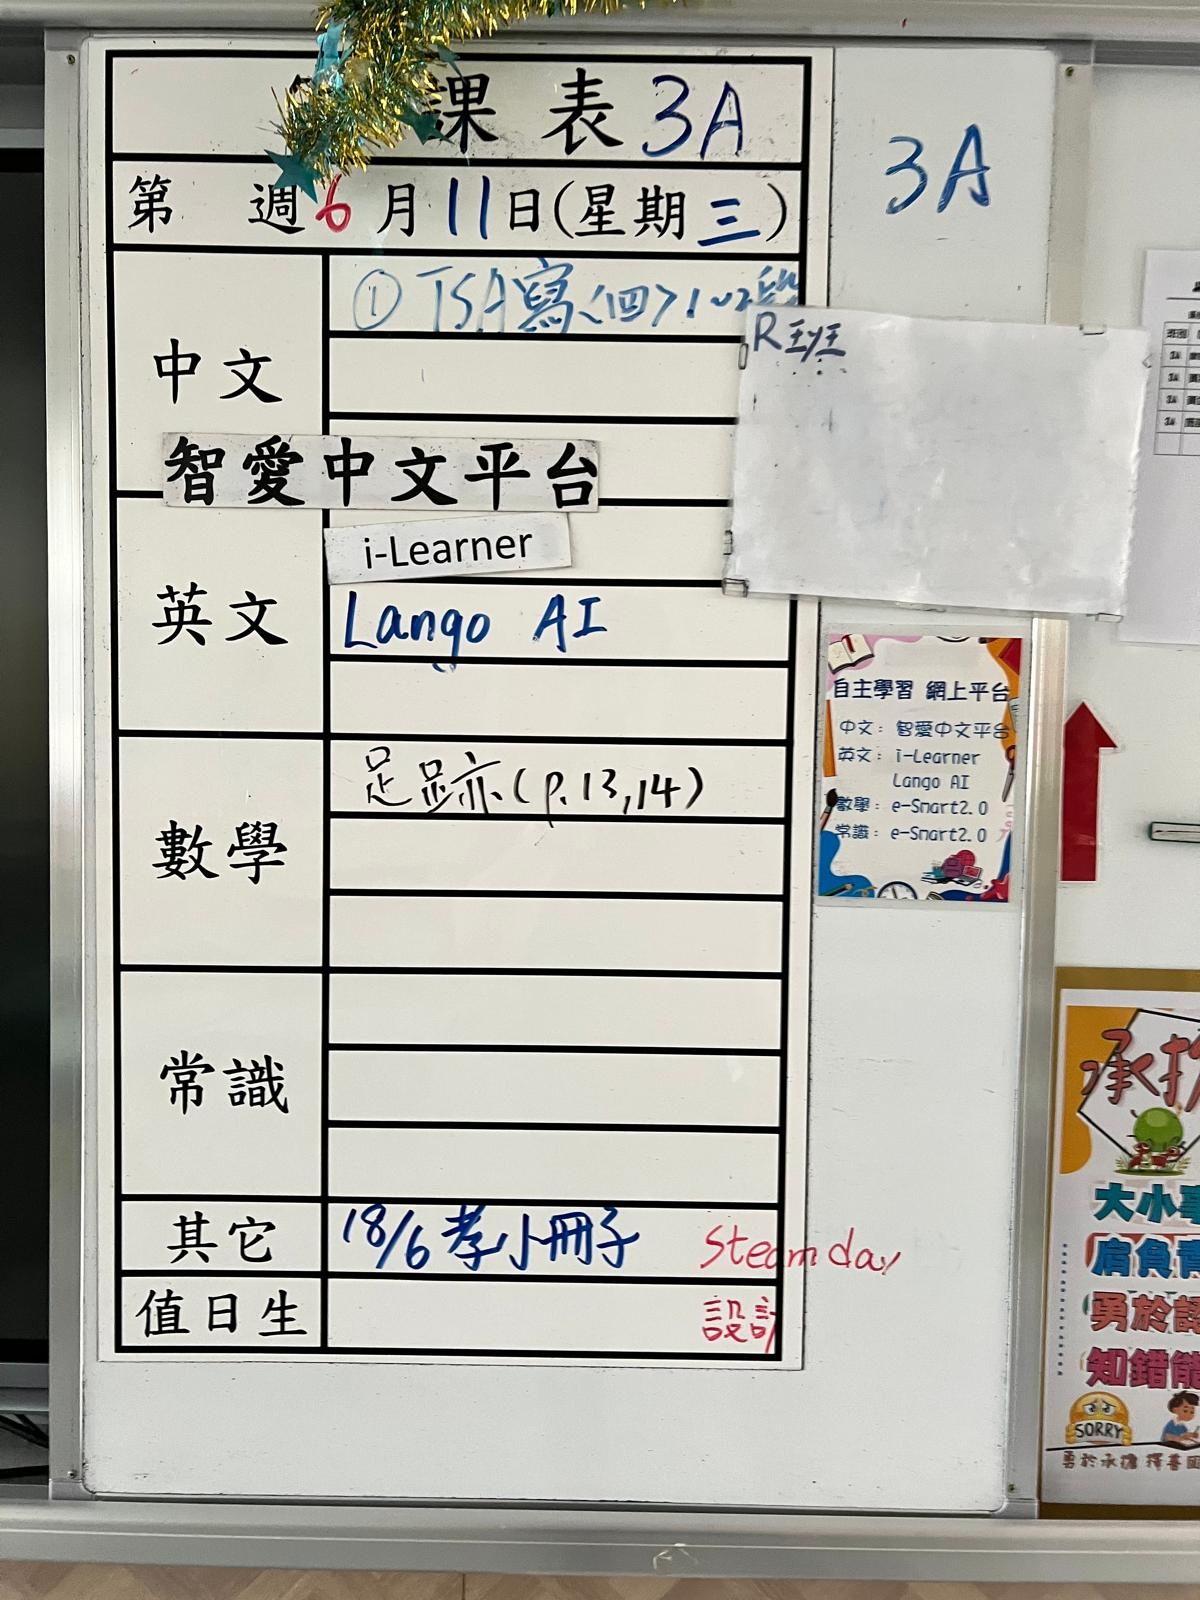 課表 3A
第 週 6月11日(星期三)
3A
中文
① TSA寫<四>1~2段
R班
智愛中文平台
英文
i-Learner
Lango AI
數學
足跡(p.13,14)
常識
其它
18/6 孝小冊子
Steam day
值日生
設計
自主學習 網上平台
中文: 智愛中文平台
英文: i-Learner
Lango AI
數學: e-Smart2.0
常識: e-Smart2.0
班別
3A
3A
3A
3A
承擔
大小事
肩負責
勇於認
知錯能
SORRY
勇於承擔